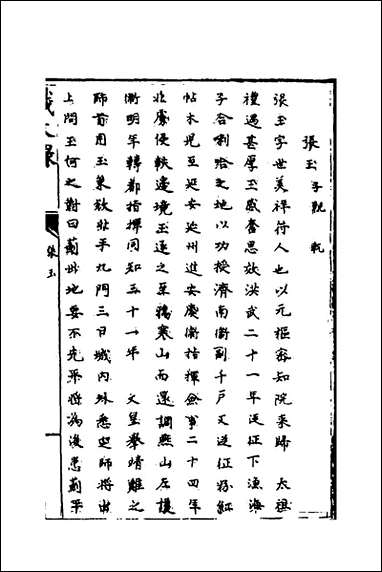 張玉 子輗 軏
張玉字世美祥符人也以元樞密知院來歸 太祖
禮遇甚厚玉感奮思效洪武二十一年從征下漁海
子合剌哈之地以功授濟南衛副千戶又從征
帖木兒至延安延州進安慶衛指揮僉事二十四年
北虜侵軼邊境玉逐之至鴉寒山而還調燕山左護
衛明年轉都指揮同知三十一年 文皇舉靖難之
師首用玉策放壯手九門三日城內外悉定師將出
上問玉何之對曰薊州地要不先平將為後患薊平
張玉